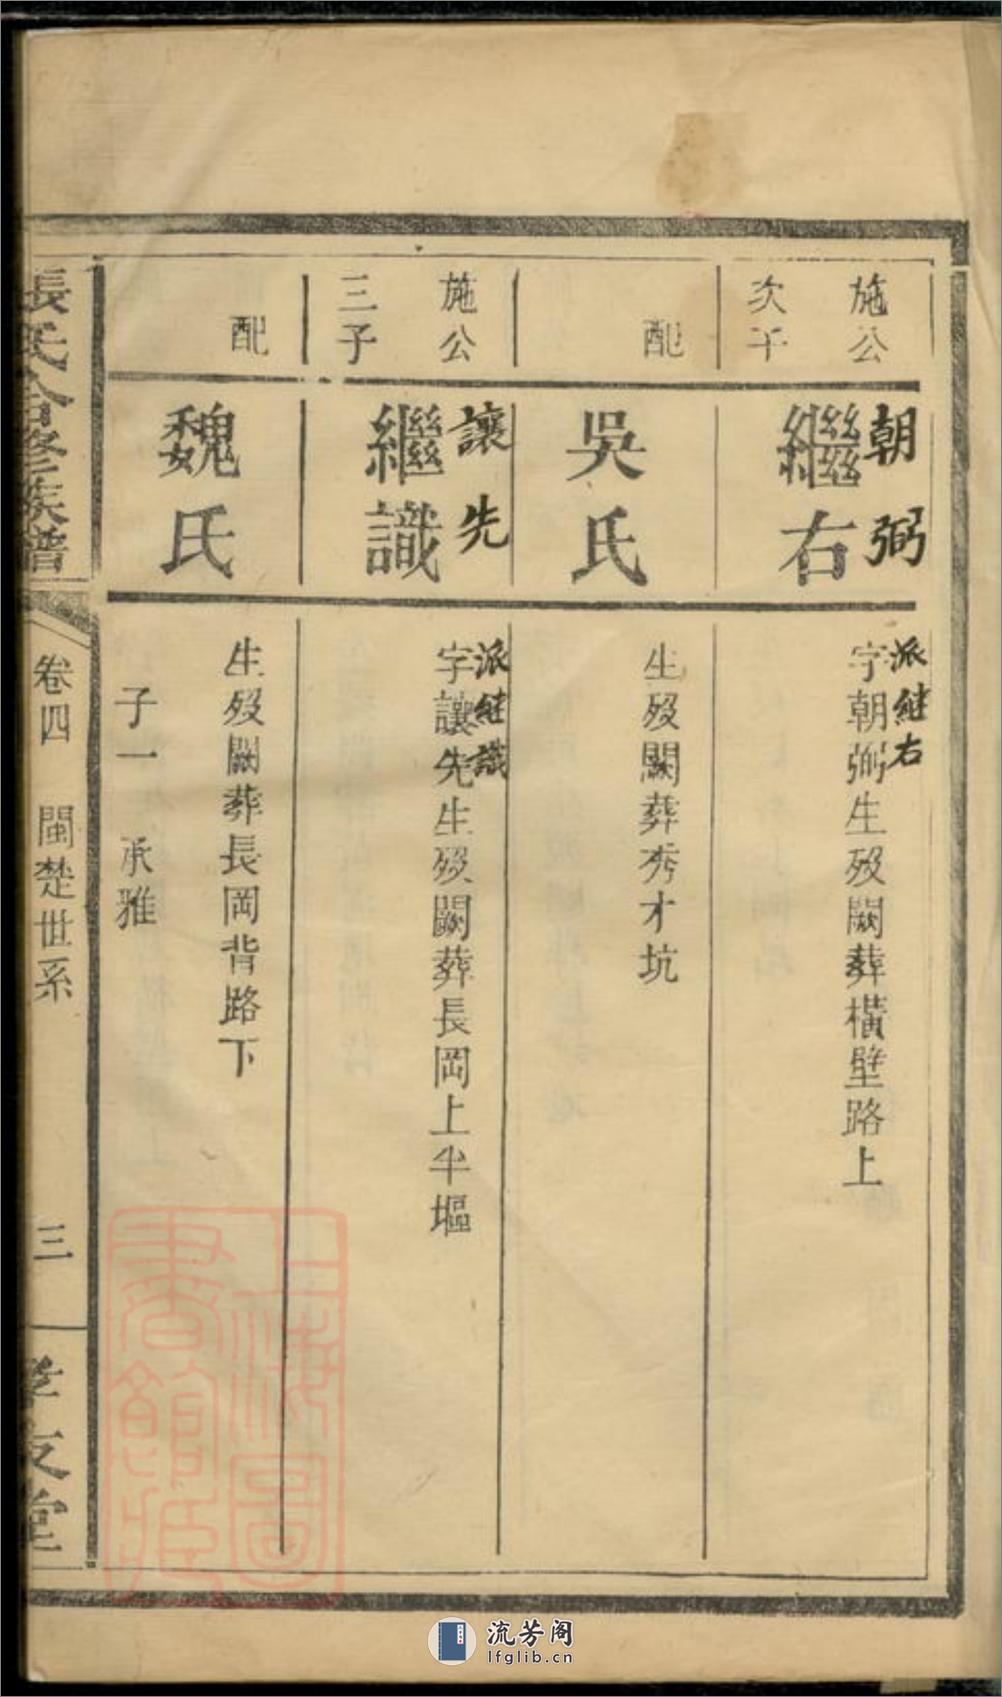 施公
次子
朝弼
繼右
派継右
字朝弼生歿闕葬橫壁路上
配
吳氏
生歿闕葬秀才坑
施公
三子
讓先
繼識
派継識
字讓先生歿闕葬長岡上半塸
配
魏氏
生歿闕葬長岡背路下
子一 承雅
張氏合修族譜
卷四 閩楚世系
三
孝友堂
上海圖
書館藏
流芳阁
lfglib.cn